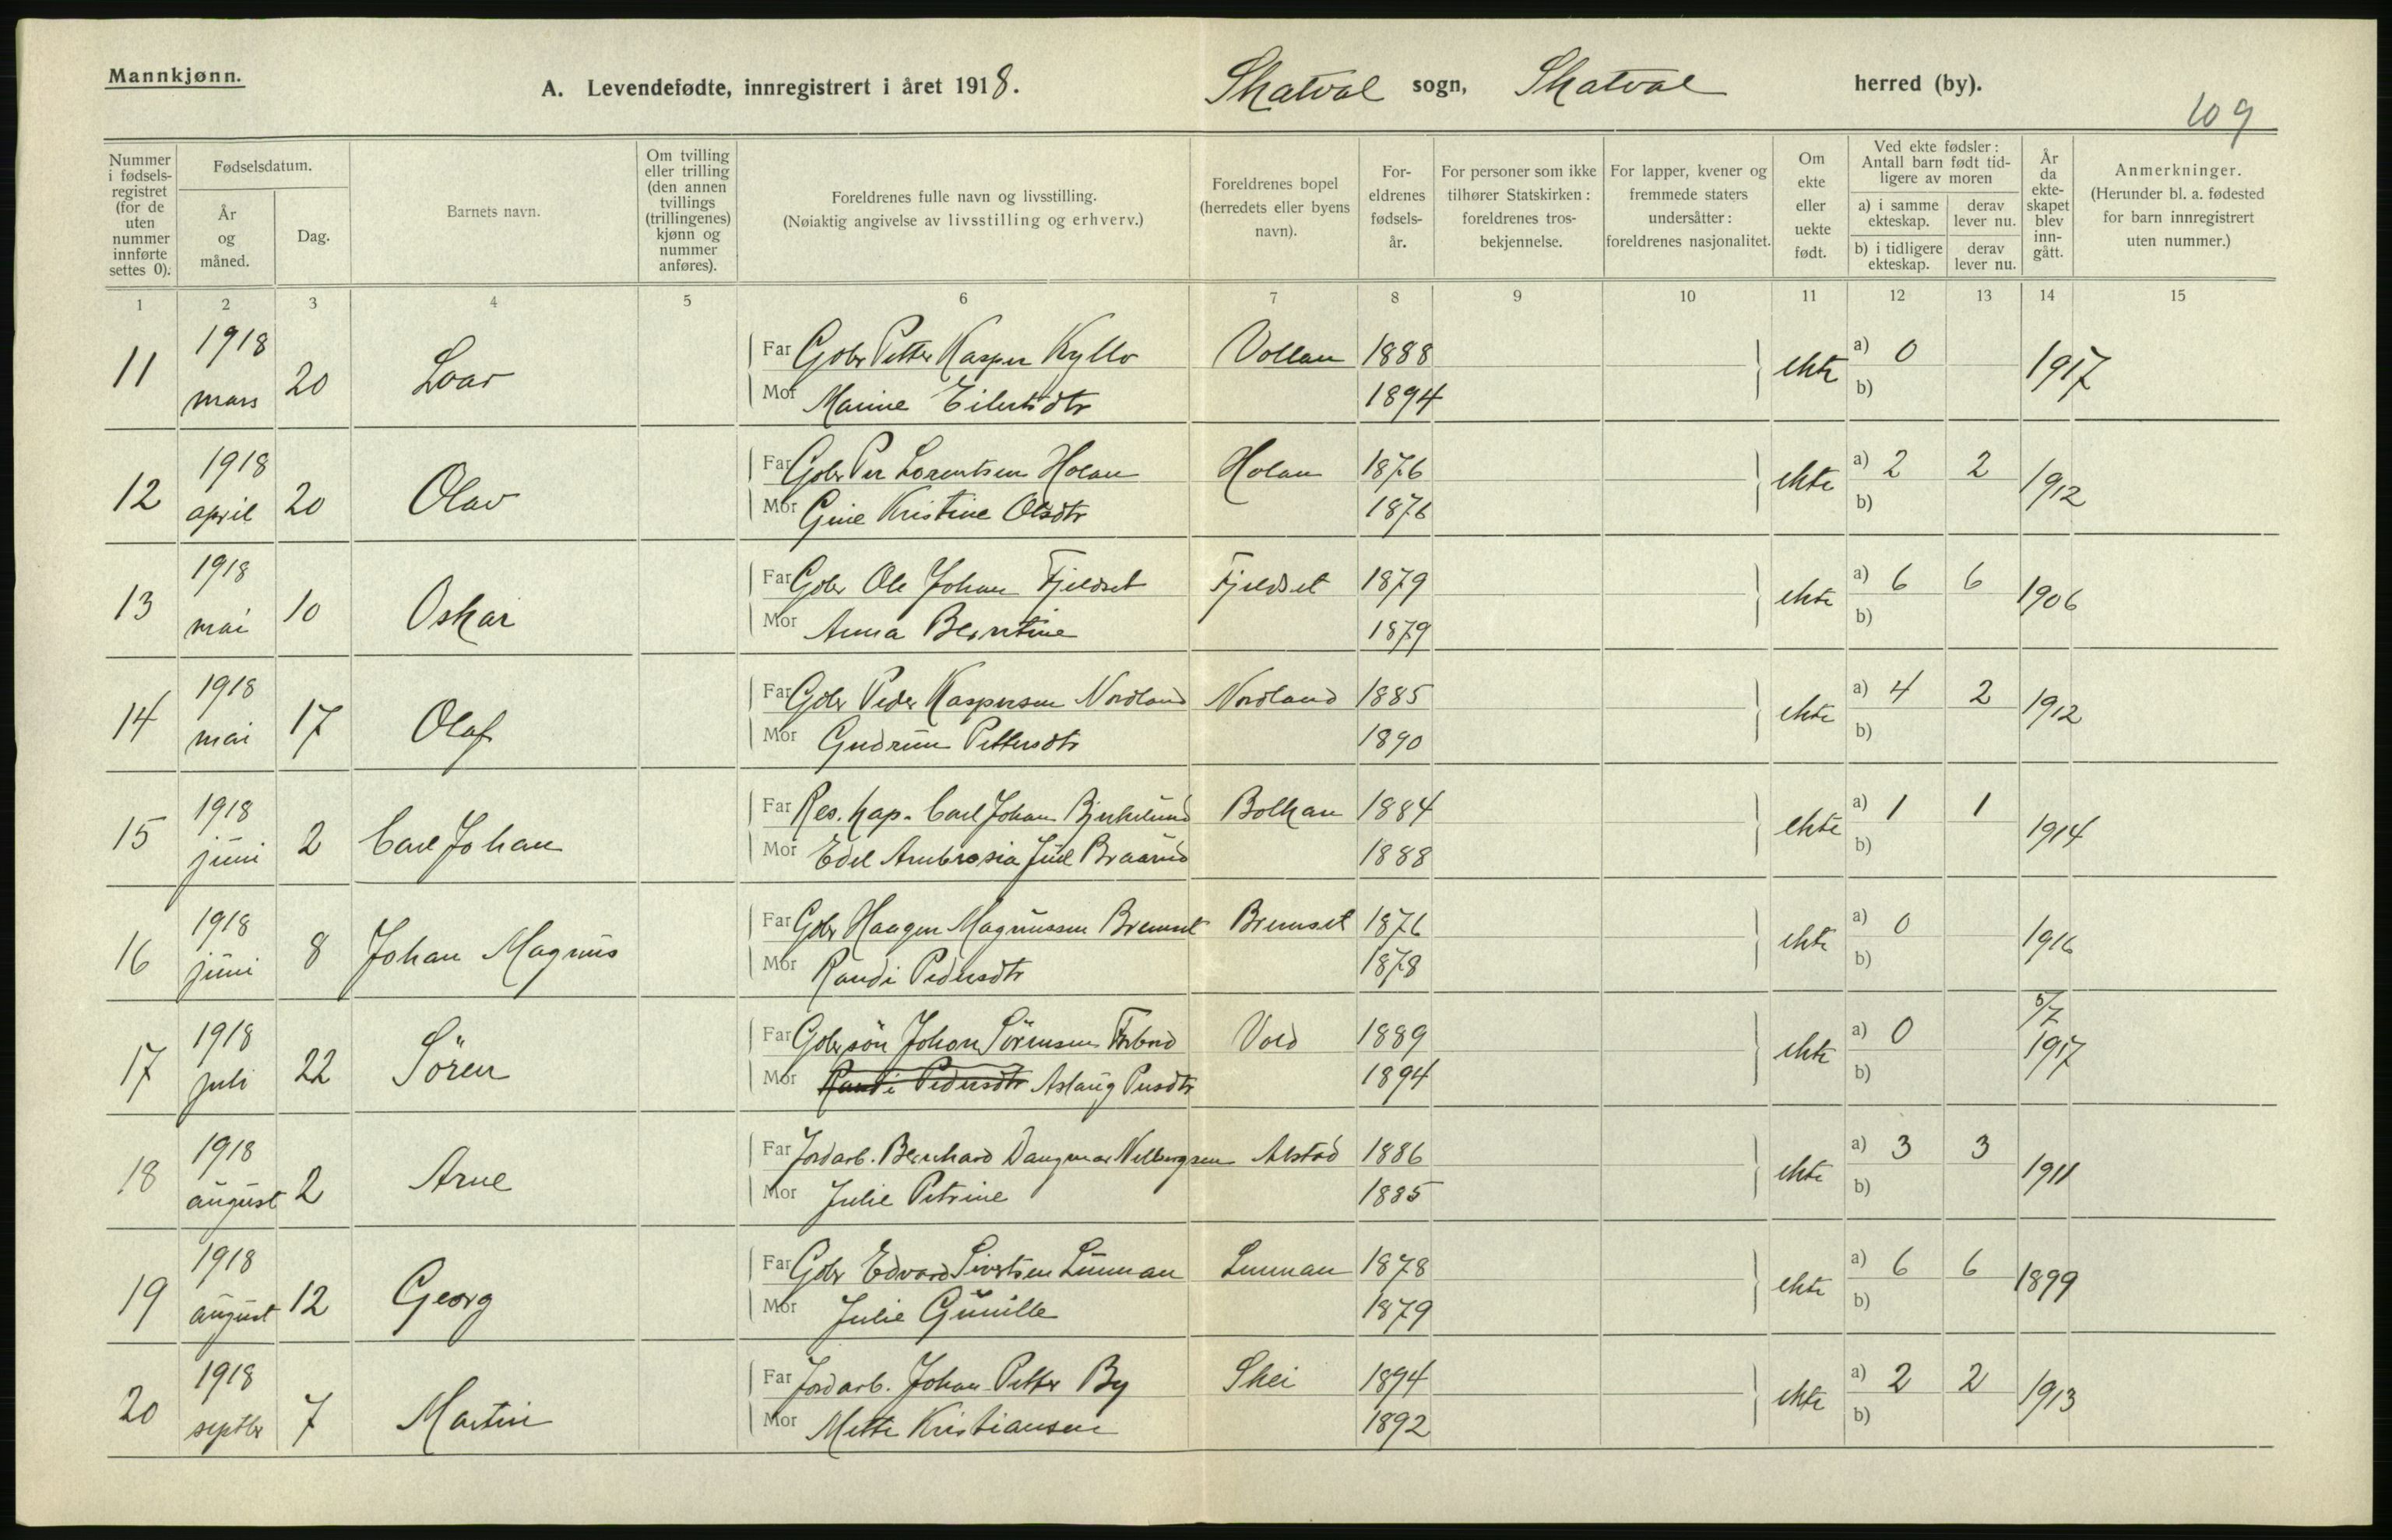 Mannkjønn.
A. Levendefødte, innregistrert i året 1918. Skatval sogn, Skatval herred (by).
109
Nummer i fødsels-registret (for de uten nummer innførte settes 0).
Fødselsdatum.
År og måned.
Dag.
Barnets navn.
Om tvilling eller trilling (den annen tvillings (trillingenes) kjønn og nummer anføres).
Foreldrenes fulle navn og livsstilling.
(Nøiaktig angivelse av livsstilling og erhverv.)
Foreldrenes bopel (herredets eller byens navn).
For-eldrenes fødsels-år.
For personer som ikke tilhører Statskirken: foreldrenes tros-bekjennelse.
For lapper, kvener og fremmede staters undersåtter: foreldrenes nasjonalitet.
Om ekte eller uekte født.
Ved ekte fødsler: Antall barn født tid-ligere av moren
a) i samme ekteskap. derav lever nu.
b) i tidligere ekteskap. derav lever nu.
År da ekte-skapet blev inn-gått.
Anmerkninger.
(Herunder bl. a. fødested for barn innregistrert uten nummer.)
1 2 3 4 5 6 7 8 9 10 11 12 13 14 15
11 1918 mars 20 Far Gbr Petter Kasper Kyllo Vollan 1888 ekte a) 0 1917
Mor Marine Eilertsdtr 1894 b)
12 1918 april 20 Olav Far Gbr Per Lorentsen Holan Holan 1876 ekte a) 2 2 1912
Mor Gine Kristine Olsdtr 1876 b)
13 1918 mai 10 Oskar Far Gbr Ole Johan Fjeldset Fjeldset 1879 ekte a) 6 6 1906
Mor Anna Berntine 1879 b)
14 1918 mai 17 Olaf Far Gbr Peder Kaspersen Nordland Nordland 1885 ekte a) 4 2 1912
Mor Gudrun Pettersdtr 1890 b)
15 1918 juni 2 Carl Johan Far Res. kap. Carl Johan Bjerkelund Bolkan 1884 ekte a) 1 1 1914
Mor Edel Ambrosia Juel Braarud 1888 b)
16 1918 juni 8 Johan Magnus Far Gbr Haagen Magnussen Bremset Bremset 1876 ekte a) 0 1916
Mor Randi Pedersdtr 1878 b)
17 1918 juli 22 Sören Far Gbr sön Johan Sörensen Forbord Vold 1889 ekte a) 0 5/7 1917
Mor Randi Pedersdtr Aslaug Persdtr 1894 b)
18 1918 august 2 Arne Far Jordarb. Bernhard Dangmar Alstad 1886 ekte a) 3 3 1911
Mor Julie Petrine 1885 b)
19 1918 august 12 Georg Far Gbr Edvard Sivertsen Linman Linman 1878 ekte a) 6 6 1899
Mor Julie Gunille 1879 b)
20 1918 septbr 7 Martin Far Jordarb. Johan Petter By Skei 1894 ekte a) 2 2 1913
Mor Mette Kristiansen 1892 b)